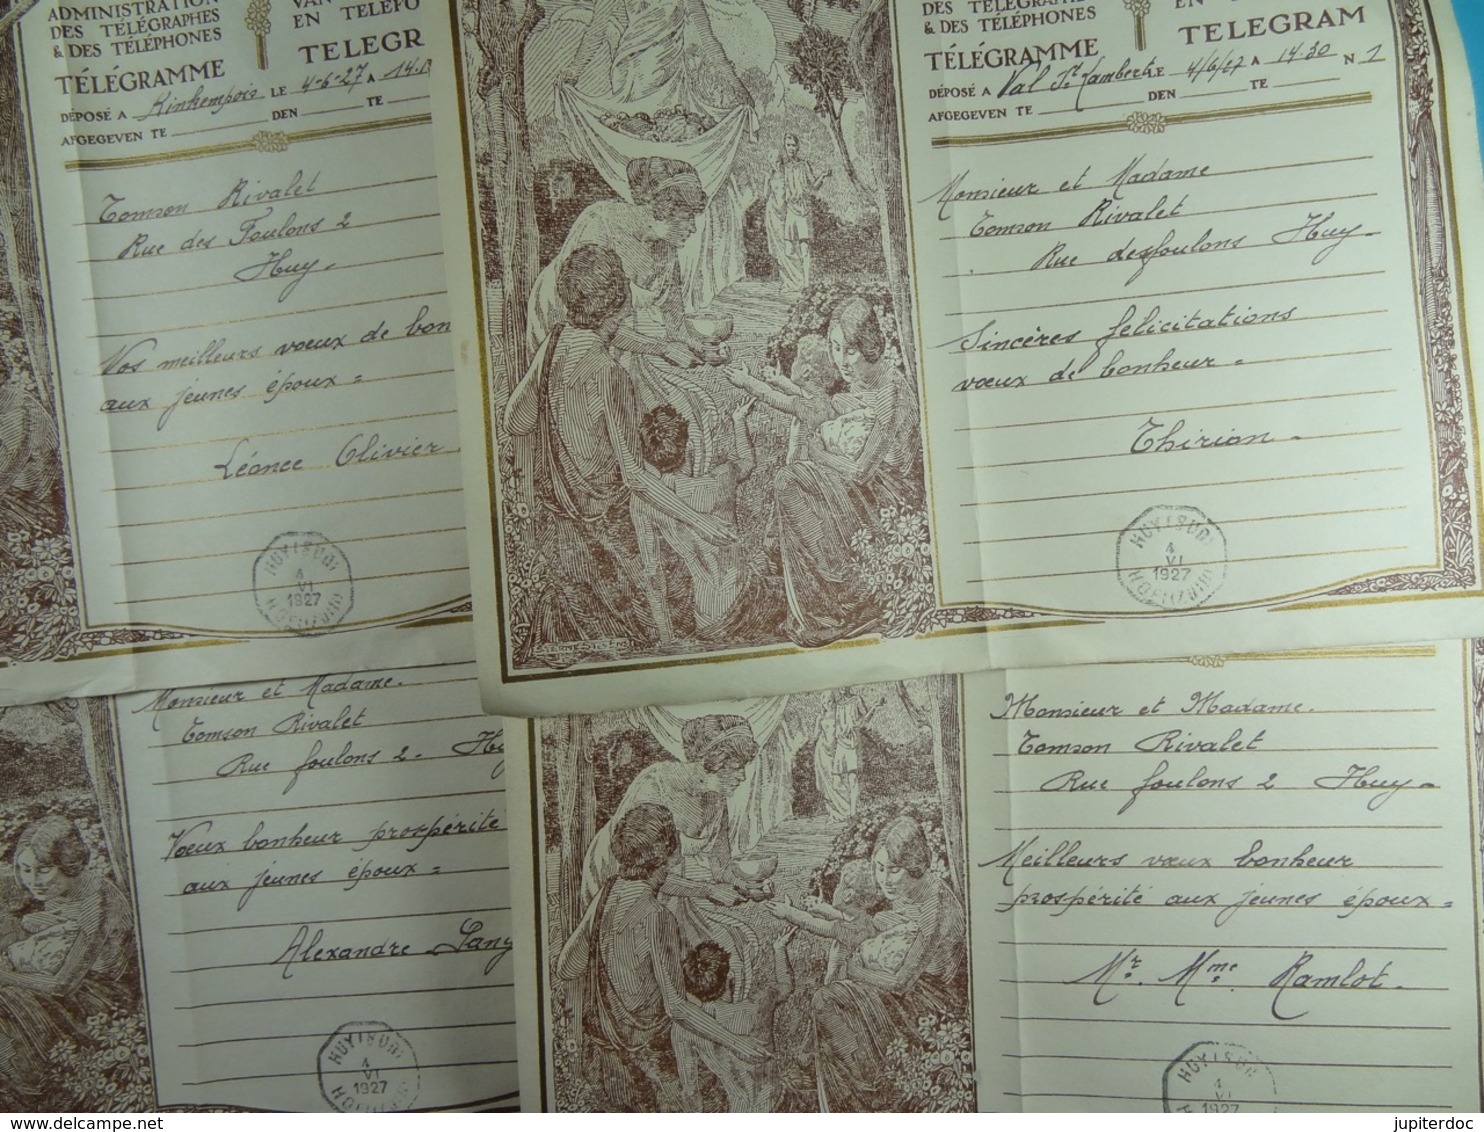 ADMINISTRATION
DES TÉLÉGRAPHES
& DES TÉLÉPHONES
TÉLÉGRAMME
VAN
EN TELEFO
TELEGR
DÉPOSÉ A Kinkempois LE 4-6-27 A 14.1
AFGEGEVEN TE DEN TE
Tomson Rivalet
Rue des Foulons 2
Huy.
Vos meilleurs voeux de bon
aux jeunes époux =
Léonce Olivier
HUY (SUD)
4
VI
1927
HOEI (ZUID)
DES TÉLÉGRAPHES
& DES TÉLÉPHONES
TÉLÉGRAMME
EN
TELEGRAM
DÉPOSÉ A Val St Lambert LE 4/6/27 A 14-30 N 1
AFGEGEVEN TE DEN TE
Monsieur et Madame
Tomson Rivalet
Rue desfoulons Huy-
Sincères felicitations
voeux de bonheur =
Thirion -
HUY (SUD)
4
VI
1927
HOEI (ZUID)
Monsieur et Madame.
Tomson Rivalet
Rue foulons 2 - Huy
Voeux bonheur prospérité
aux jeunes époux =
Alexandre
HUY (SUD)
4
VI
1927
HOEI (ZUID)
Monsieur et Madame.
Tomson Rivalet
Rue foulons 2 Huy-
Meilleurs voeux bonheur
prospérité aux jeunes époux =
Mr. Mme. Ramlot.
HUY (SUD)
4
VI
1927
jupiterdoc
© www.delcampe.net